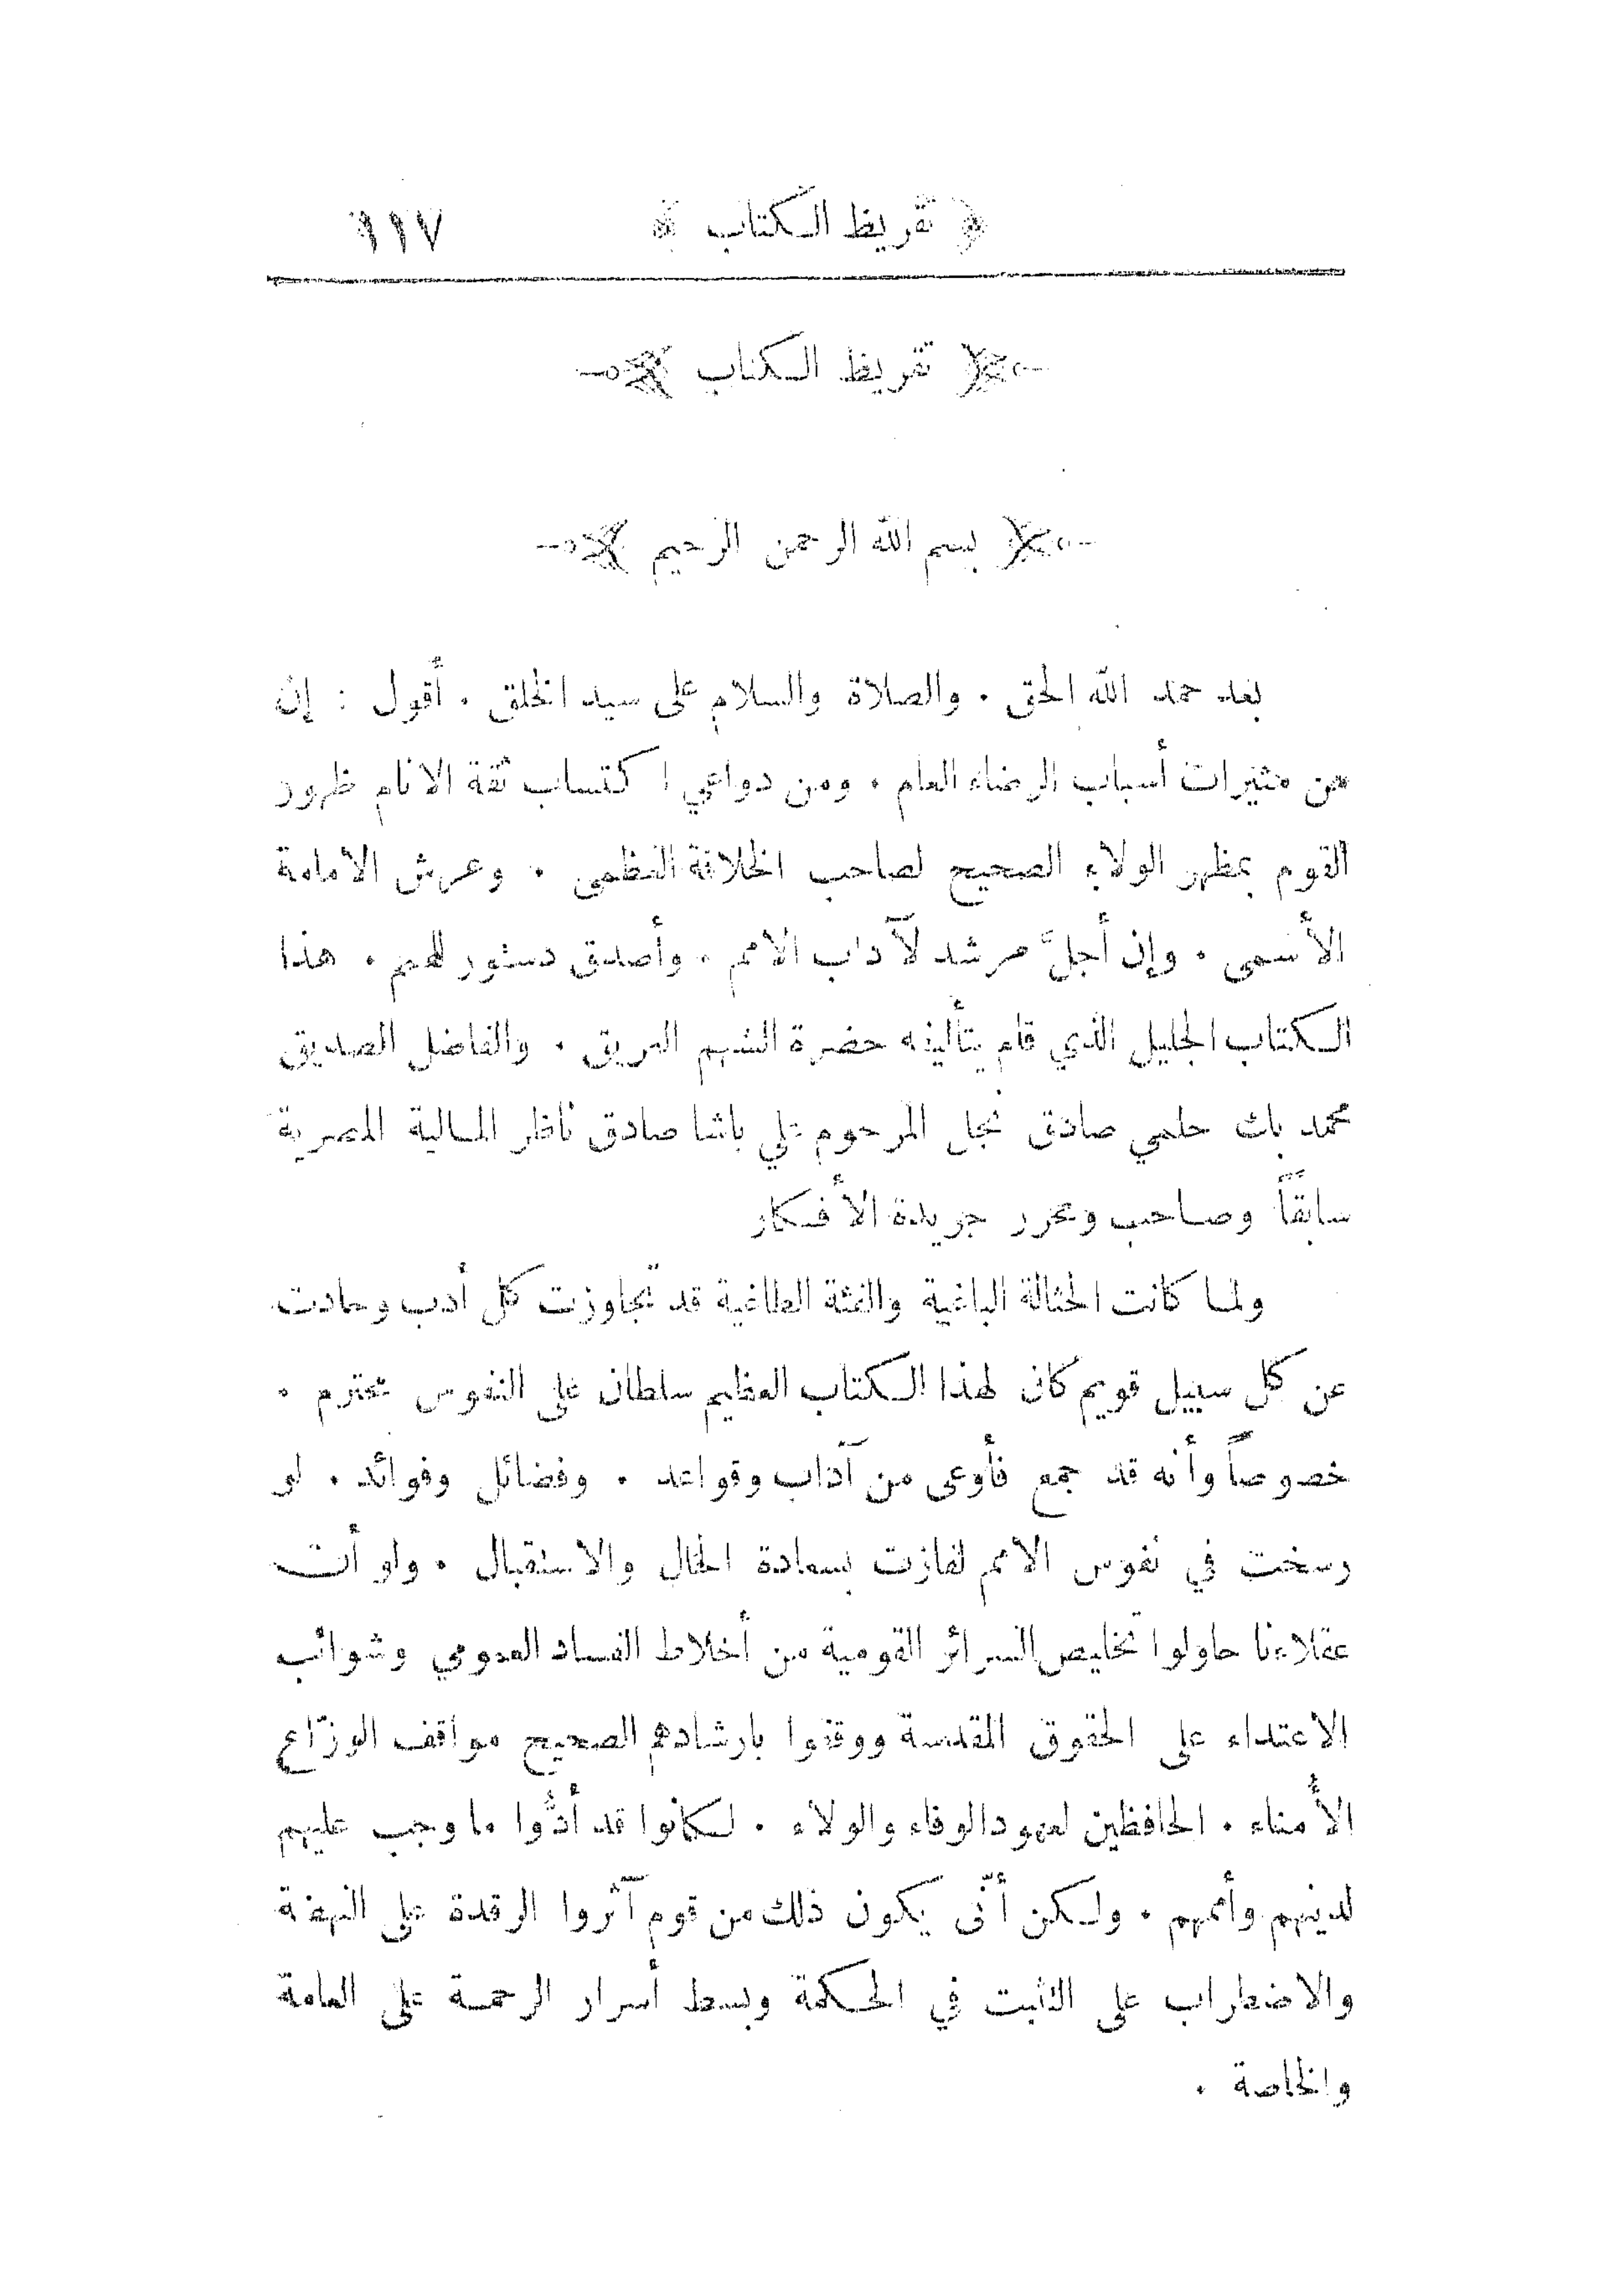 ﴿ تقريظ الكتاب ﴾ ١١٧
تقريظ الكتاب
بسم الله الرحمن الرحيم
بعد حمد الله الحق . والصلاة والسلام على سيد الخلق . أقول : إن
من مثيرات أسباب الرضاء العام . ومن دواعي اكتساب ثقة الانام ظهور
القوم بمظهر الولاء الصحيح لصاحب الخلافة العظمى . وعرش الامامة
الأسمى . وإن أجلَّ مرشد لآداب الامم . وأصدق دستور للهمم . هذا
الكتاب الجليل الذي قام بتأليفه حضرة الشهم العريق . والفاضل الصديق
محمد بك حلمي صادق نجل المرحوم علي باشا صادق ناظر المالية المصرية
سابقاً وصاحب ومحرر جريدة الأفكار
ولما كانت الحثالة الباغية والفئة الطاغية قد تجاوزت كل أدب وحادت
عن كل سبيل قويم كان لهذا الكتاب العظيم سلطان على النفوس محترم .
خصوصاً وأنه قد جمع فأوعى من آداب وقواعد . وفضائل وفوائد . لو
رسخت في نفوس الامم لفازت بسعادة الحال والاستقبال . ولو أنت
عقلاءنا حاولوا تخليص السرائر القومية من أخلاط الفساد العمومي وشوائب
الاعتداء على الحقوق المقدسة ووقفوا بارشادهم الصحيح مواقف الوزّاع
الأُمناء . الحافظين لعهود الوفاء والولاء . لكانوا قد أدُّوا ما وجب عليهم
لدينهم وأممهم . ولكن أنّى يكون ذلك من قوم آثروا الرقدة على النهضة
والاضطراب على التثبت في الحكمة وبسط أسرار الرحمة على العامة
والخاصة .